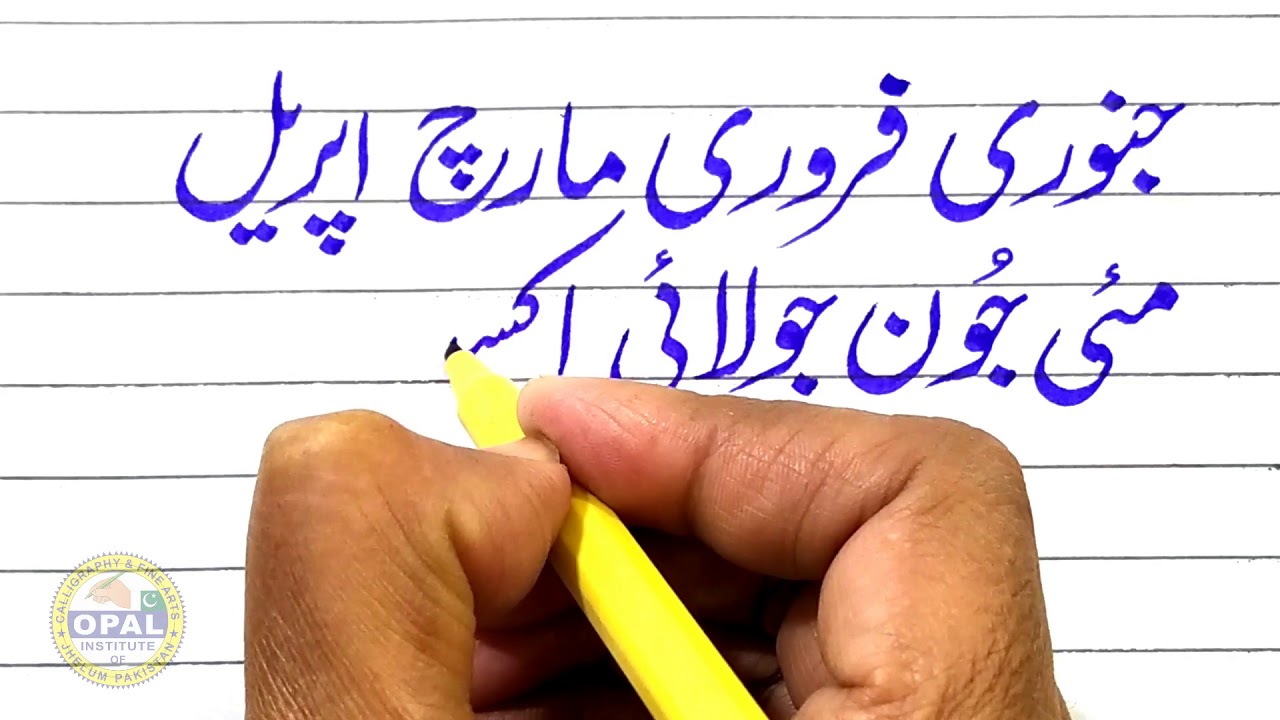 جنوری فروری مارچ اپریل
مئی جُون جولائی اکسـ
CALLIGRAPHY & FINE ARTS
OPAL
INSTITUTE
OF
JHELUM PAKISTAN